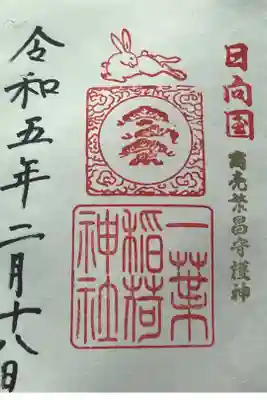 日向国
商売繁昌守護神
一葉
稲荷
神社
令和五年二月十八日